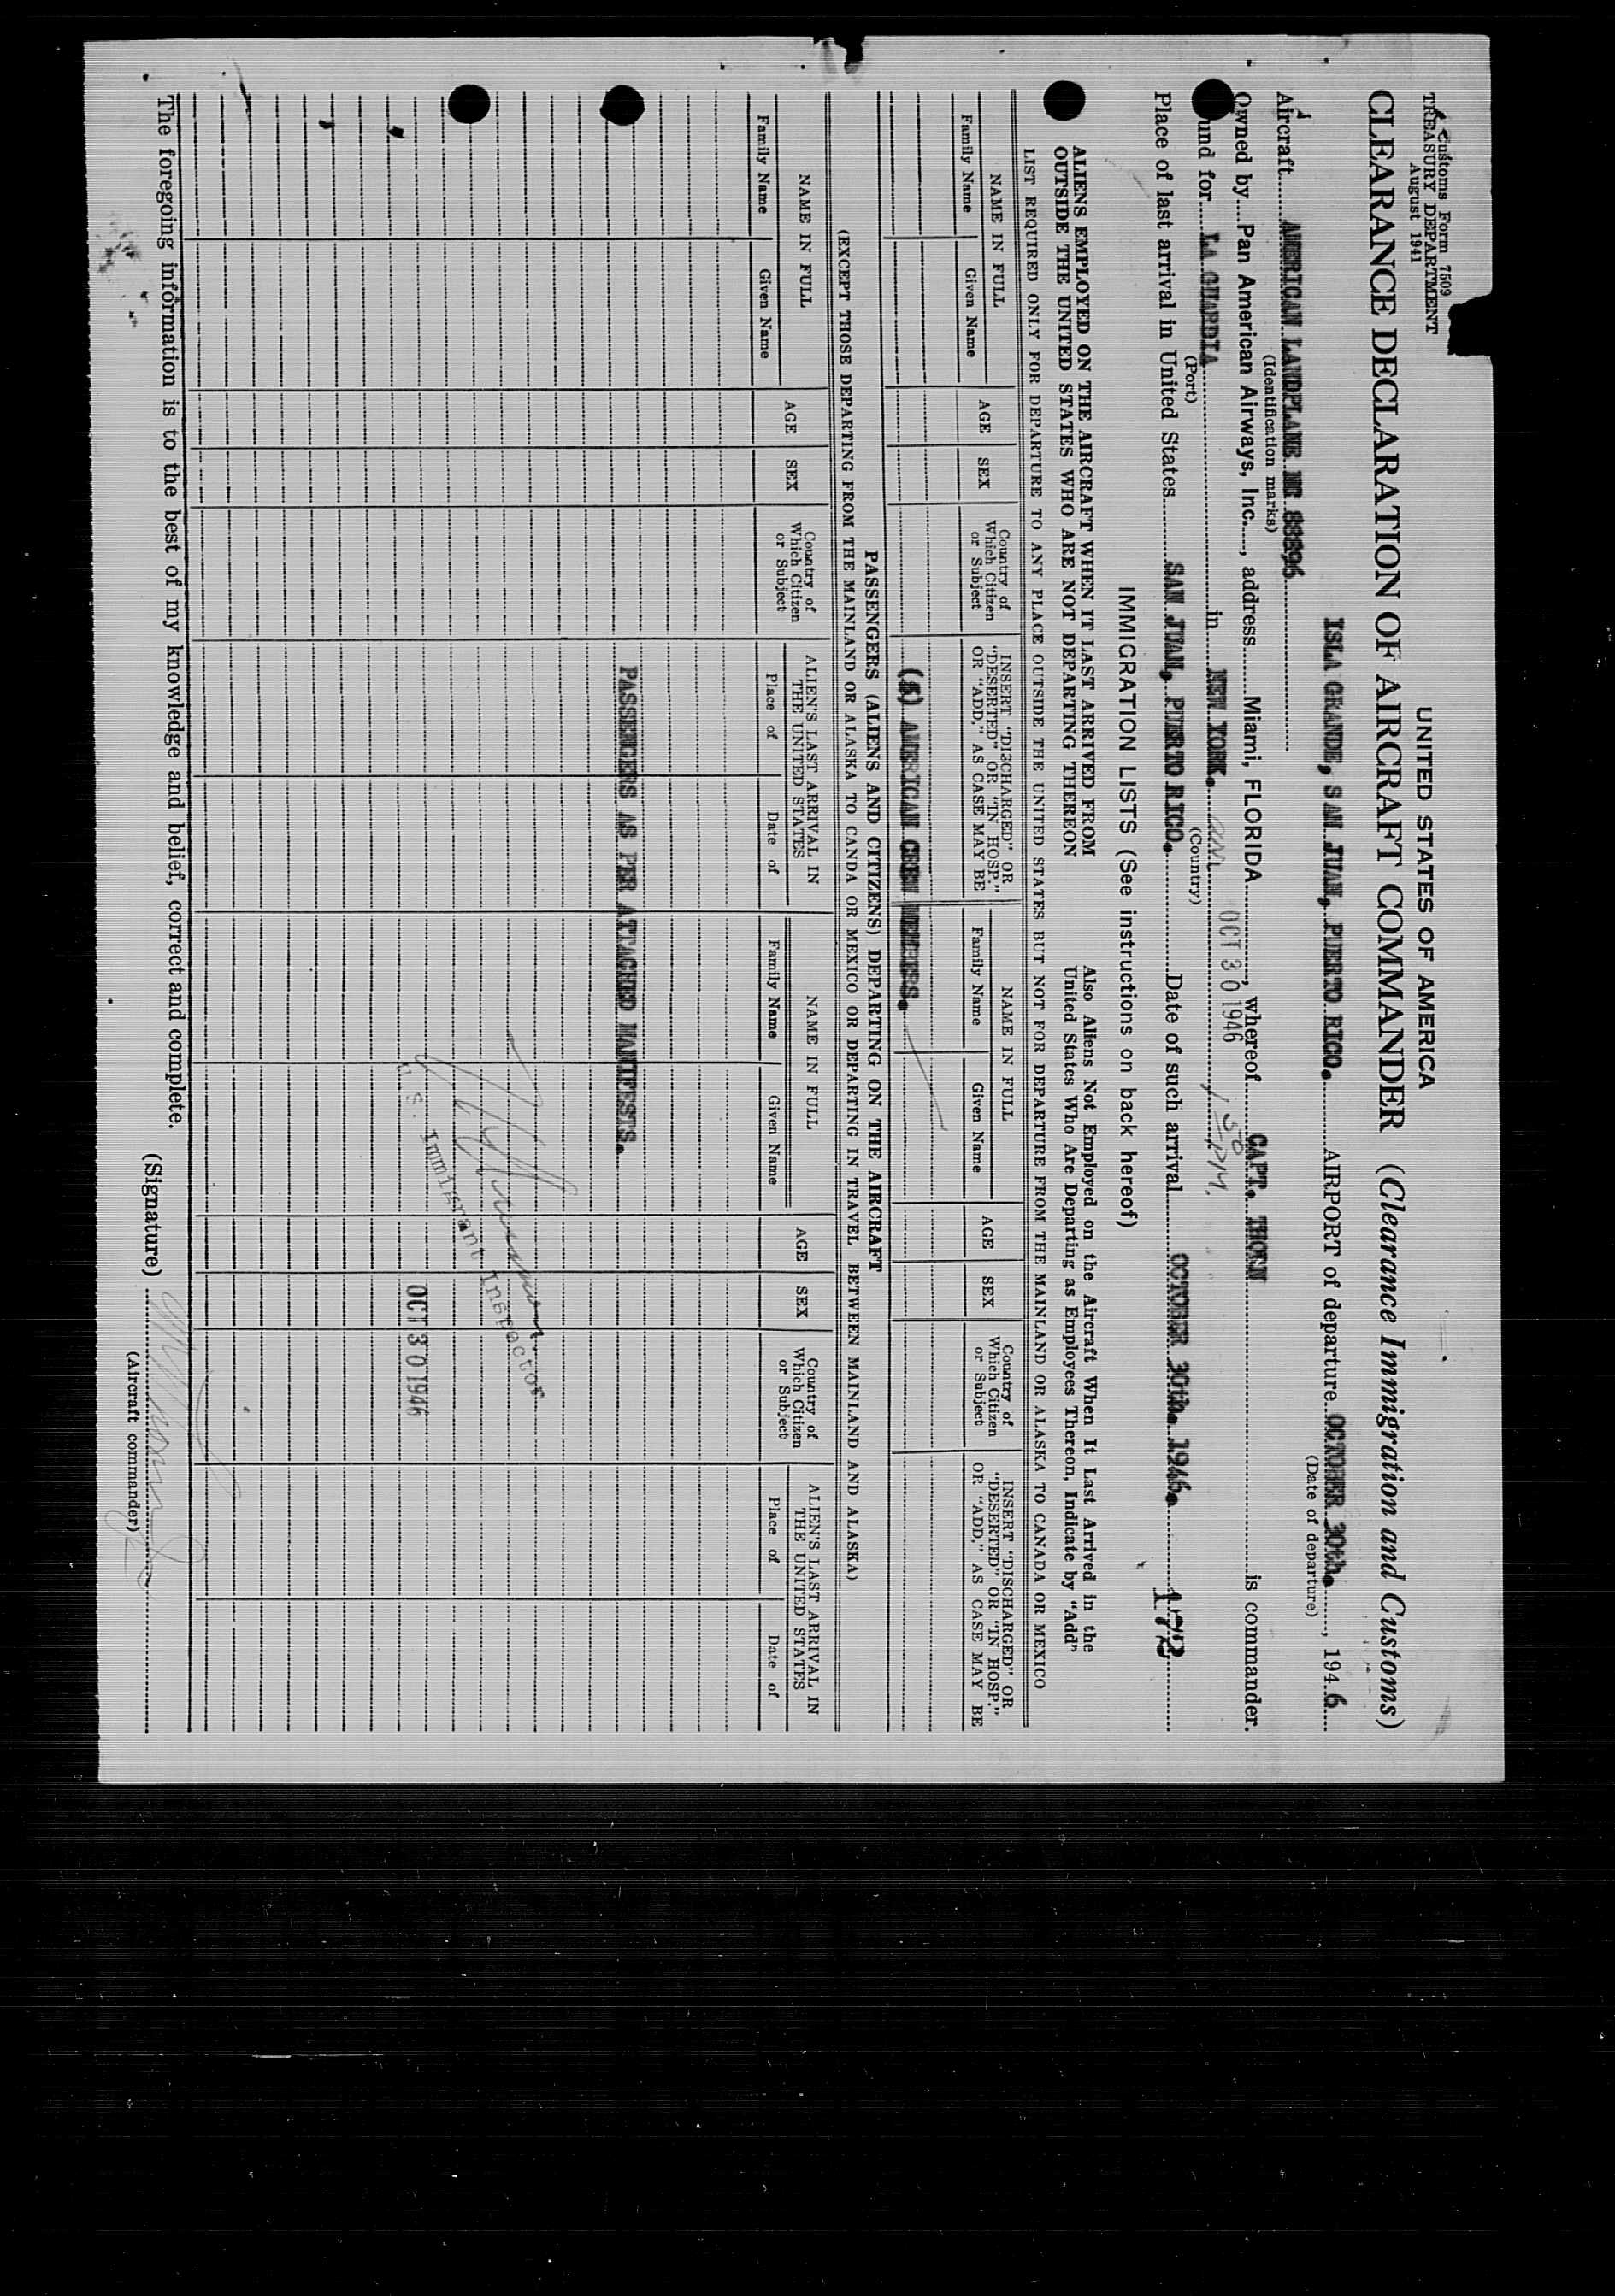 Customs Form 7509
TREASURY DEPARTMENT
August 1941
UNITED STATES OF AMERICA
CLEARANCE DECLARATION OF AIRCRAFT COMMANDER (Clearance Immigration and Customs)
ISLA GRANDE, SAN JUAN, PUERTO RICO. AIRPORT of departure OCTOBER 30th. , 1946
(Date of departure)
Aircraft AMERICAN LANDPLANE NC 88896
(Identification marks)
Owned by Pan American Airways, Inc., address Miami, FLORIDA, whereof CAPT. THORN is commander.
OCT 30 1946
und for LA GUARDIA in NEW YORK.
(Port) (Country)
Place of last arrival in United States SAN JUAN, PUERTO RICO. Date of such arrival OCTOBER 30th. 1946.
172
IMMIGRATION LISTS (See instructions on back hereof)
ALIENS EMPLOYED ON THE AIRCRAFT WHEN IT LAST ARRIVED FROM
OUTSIDE THE UNITED STATES WHO ARE NOT DEPARTING THEREON
Also Aliens Not Employed on the Aircraft When It Last Arrived in the
United States Who Are Departing as Employees Thereon, Indicate by "Add"
LIST REQUIRED ONLY FOR DEPARTURE TO ANY PLACE OUTSIDE THE UNITED STATES BUT NOT FOR DEPARTURE FROM THE MAINLAND OR ALASKA TO CANADA OR MEXICO
NAME IN FULL
Family Name Given Name
AGE
SEX
Country of
Which Citizen
or Subject
INSERT "DISCHARGED" OR
"DESERTED" OR "IN HOSP."
OR "ADD," AS CASE MAY BE
NAME IN FULL
Family Name Given Name
AGE
SEX
Country of
Which Citizen
or Subject
INSERT "DISCHARGED" OR
"DESERTED" OR "IN HOSP."
OR "ADD," AS CASE MAY BE
(5) AMERICAN CREW MEMBERS.
PASSENGERS (ALIENS AND CITIZENS) DEPARTING ON THE AIRCRAFT
(EXCEPT THOSE DEPARTING FROM THE MAINLAND OR ALASKA TO CANDA OR MEXICO OR DEPARTING IN TRAVEL BETWEEN MAINLAND AND ALASKA)
NAME IN FULL
Family Name Given Name
AGE
SEX
Country of
Which Citizen
or Subject
ALIEN'S LAST ARRIVAL IN
THE UNITED STATES
Place of Date of
NAME IN FULL
Family Name Given Name
AGE
SEX
Country of
Which Citizen
or Subject
ALIEN'S LAST ARRIVAL IN
THE UNITED STATES
Place of Date of
PASSENGERS AS PER ATTACHED MANIFESTS.
U. S. Immigrant Inspector
OCT 30 1946
The foregoing information is to the best of my knowledge and belief, correct and complete.
(Signature)
(Aircraft commander)